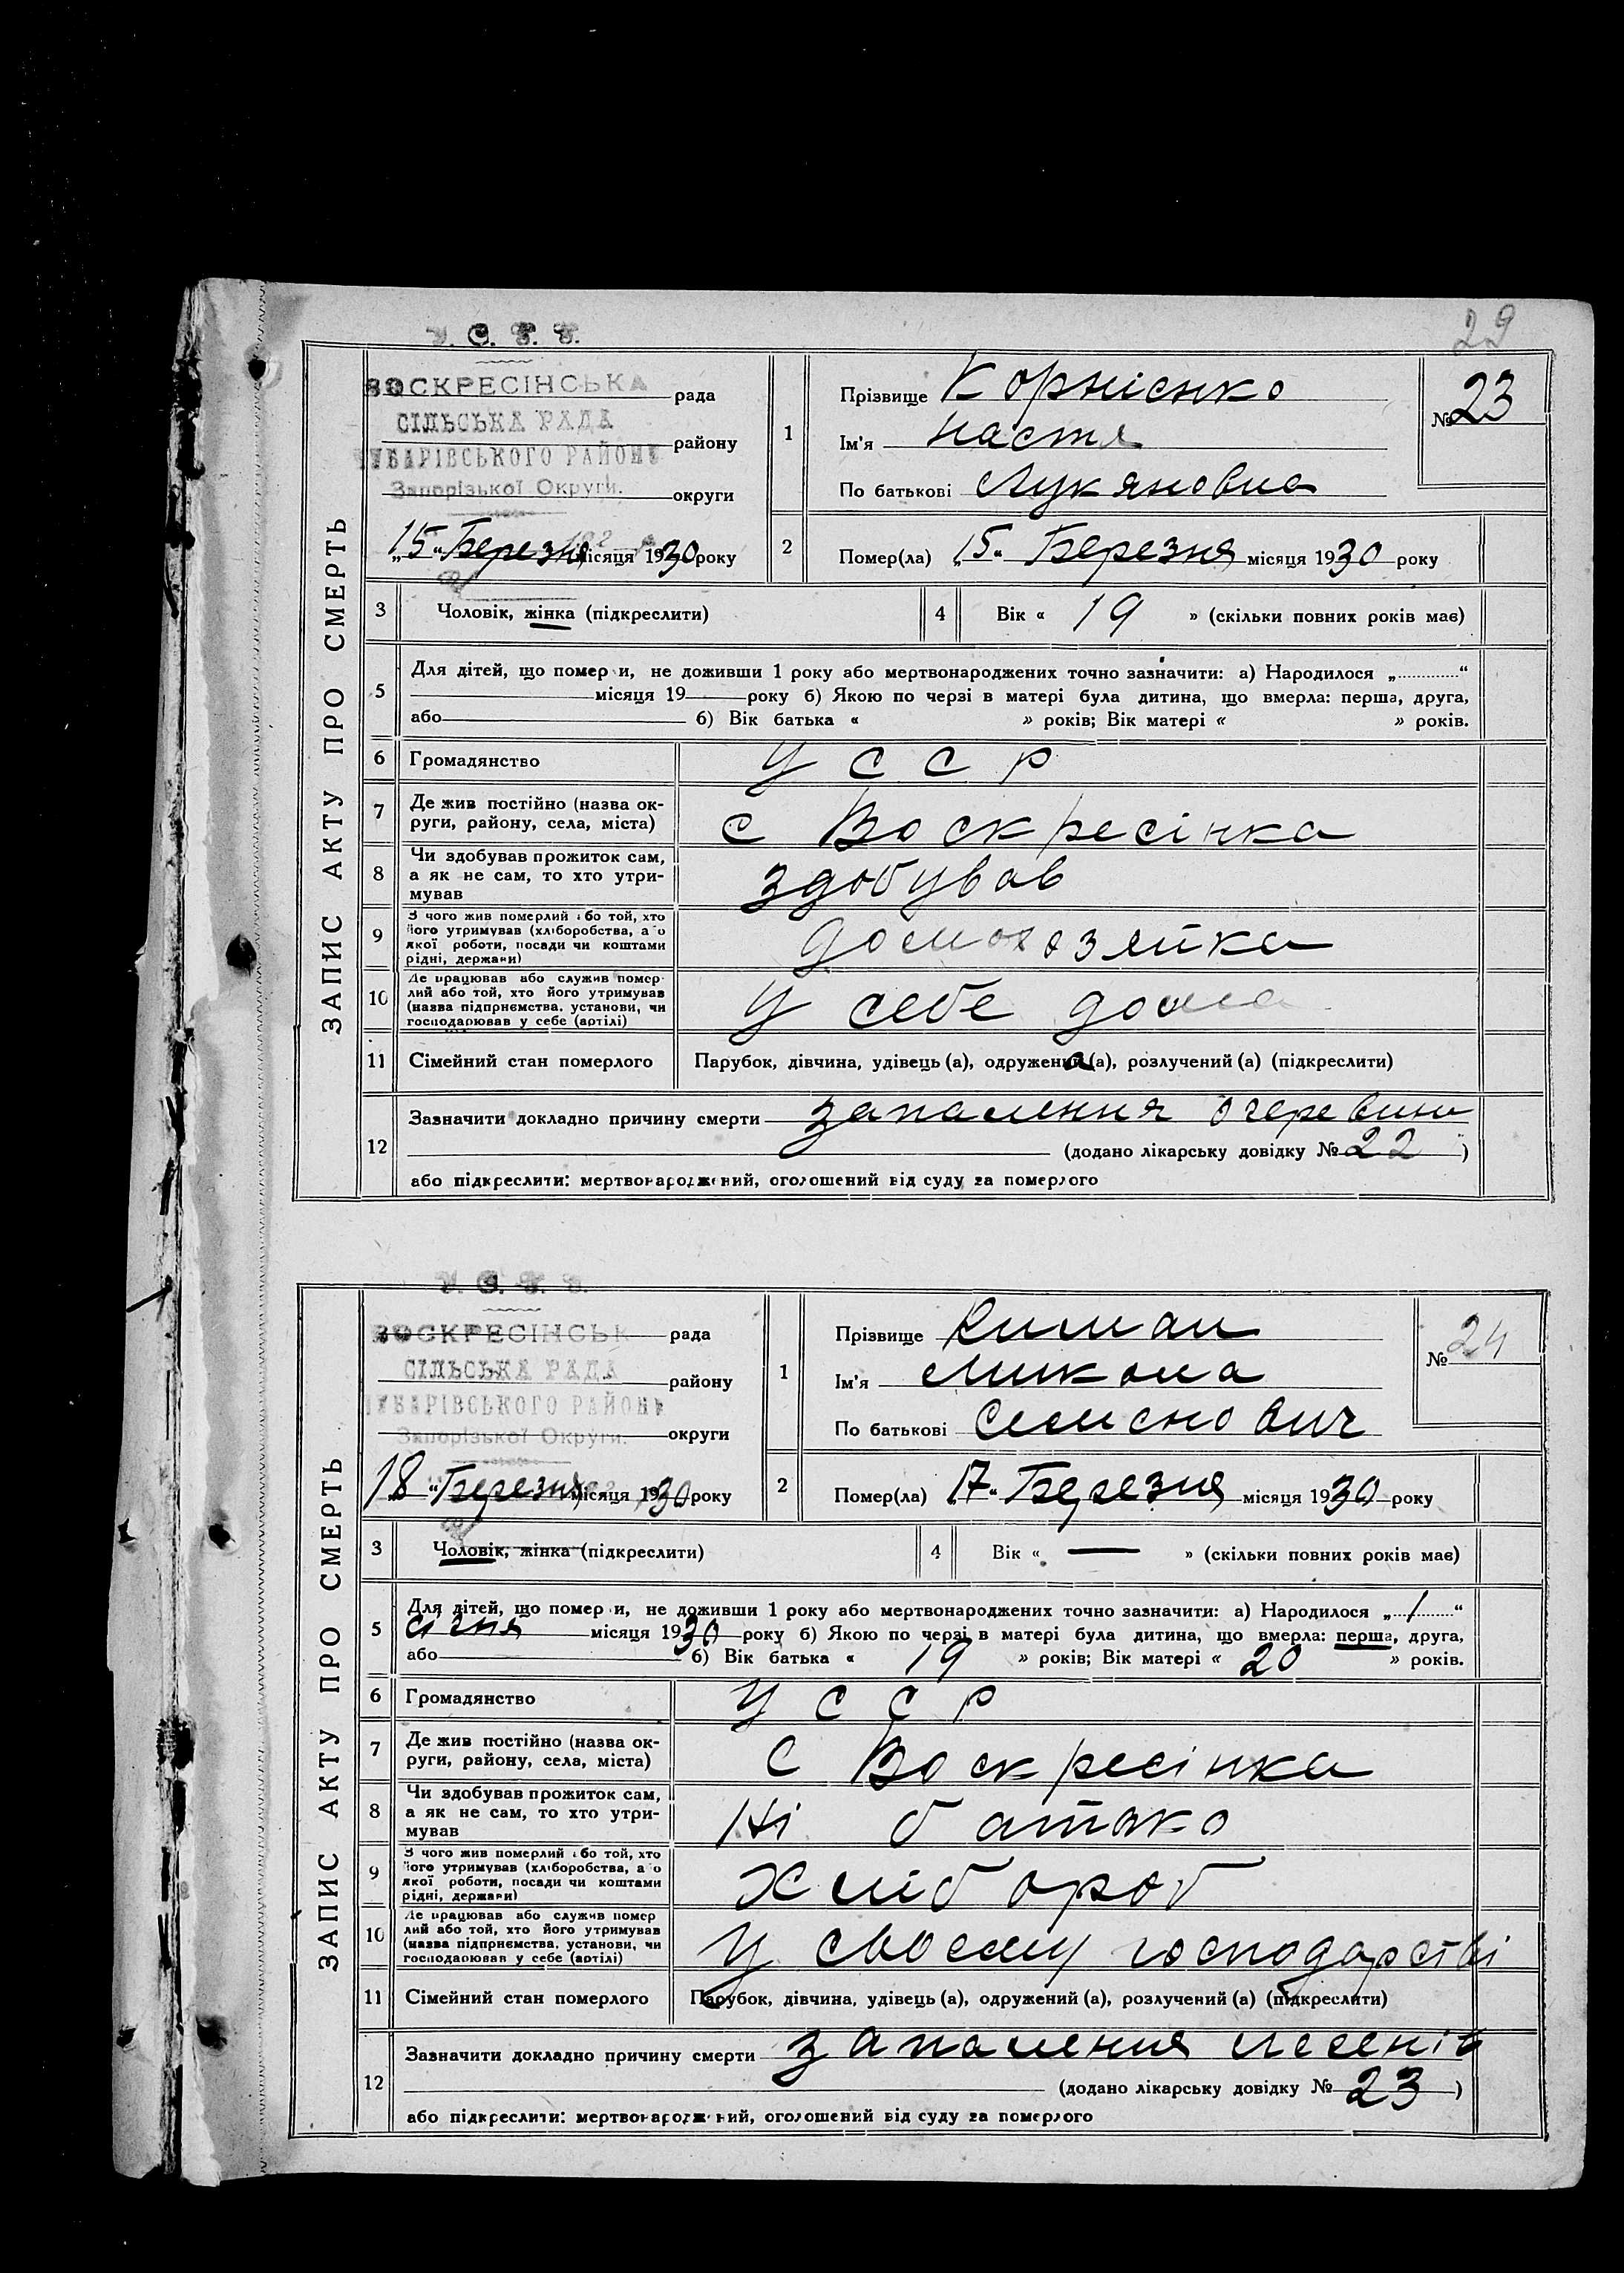 29
У. С. Р. Р.
ВОСКРЕСІНСЬКА рада
СІЛЬСЬКА РАДА району
ЧУБАРІВСЬКОГО РАЙОНУ
Запорізької Округи. округи
„15“ Березня місяця 1930 року
1
Прізвище Корнієнко
Ім'я Настя
По батькові Лукяновна
№ 23
2
Помер(ла) „15“ Березня місяця 1930 року
ЗАПИС АКТУ ПРО СМЕРТЬ
3 Чоловік, жінка (підкреслити)
4 Вік « 19 » (скільки повних років має)
5 Для дітей, що померли, не доживши 1 року або мертвонароджених точно зазначити: а) Народилося „ “
місяця 19 року б) Якою по черзі в матері була дитина, що вмерла: перша, друга,
або б) Вік батька « » років; Вік матері « » років.
6 Громадянство У С С Р
7 Де жив постійно (назва ок-
руги, району, села, міста) с Воскресінка
8 Чи здобував прожиток сам,
а як не сам, то хто утри-
мував здобував
9 З чого жив померлий або той, хто
його утримував (хліборобства, або
якої роботи, посади чи коштами
рідні, держави) домохозяйка
10 Де працював або служив помер-
лий або той, хто його утримував
(назва підприємства, установи, чи
господарював у себе (артілі) У себе дома
11 Сімейний стан померлого Парубок, дівчина, удівець (а), одружений (а), розлучений (а) (підкреслити)
12 Зазначити докладно причину смерти запалення очеревини
(додано лікарську довідку № 22 )
або підкреслити: мертвонароджений, оголошений від суду за померлого
У. С. Р. Р.
ВОСКРЕСІНСЬК рада
СІЛЬСЬКА РАДА району
ЧУБАРІВСЬКОГО РАЙОНУ
Запорізької Округи. округи
18 “ Березня місяця 1930 року
1
Прізвище
Ім'я Микола
По батькові Семенович
№ 24
2
Помер(ла) 17“ Березня місяця 1930 року
ЗАПИС АКТУ ПРО СМЕРТЬ
3 Чоловік, жінка (підкреслити)
4 Вік « — » (скільки повних років має)
5 Для дітей, що померли, не доживши 1 року або мертвонароджених точно зазначити: а) Народилося „ 1 “
січня місяця 1930 року б) Якою по черзі в матері була дитина, що вмерла: перша, друга,
або б) Вік батька « 19 » років; Вік матері « 20 » років.
6 Громадянство У С С Р
7 Де жив постійно (назва ок-
руги, району, села, міста) с Воскресінка
8 Чи здобував прожиток сам,
а як не сам, то хто утри-
мував Ні батько
9 З чого жив померлий або той, хто
його утримував (хліборобства, або
якої роботи, посади чи коштами
рідні, держави) Хлібороб
10 Де працював або служив помер
лий або той, хто його утримував
(назва підприємства, установи, чи
господарював у себе (артілі) У своєму господарстві
11 Сімейний стан померлого Парубок, дівчина, удівець (а), одружений (а), розлучений (а) (підкреслити)
12 Зазначити докладно причину смерти запалення легенів
(додано лікарську довідку № 23 )
або підкреслити: мертвонароджений, оголошений від суду за померлого